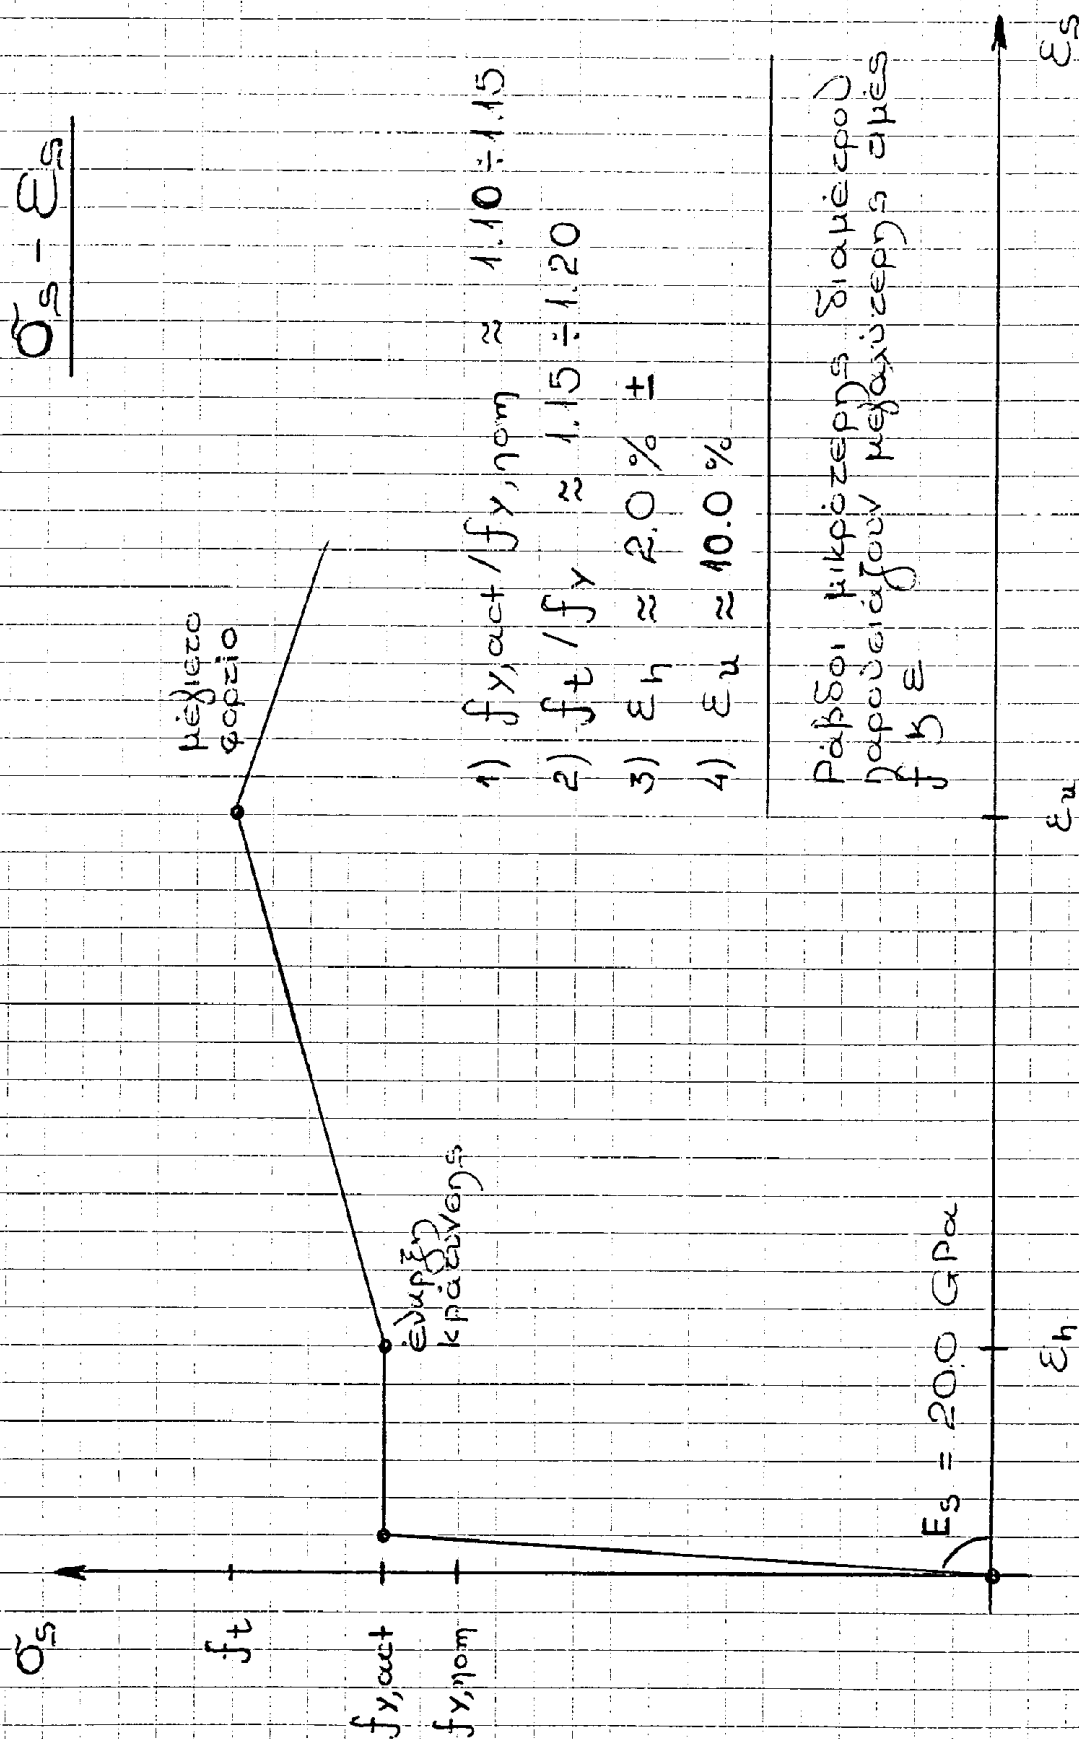 σs - εs
σs
ft
fy,act
fy,nom
μέγιστο
φορτίο
έναρξη
κράτυνσης
1) fy,act / fy,nom ≈ 1.10 ÷ 1.15
2) ft / fy ≈ 1.15 ÷ 1.20
3) εh ≈ 2.0 % ±
4) εu ≈ 10.0 %
Ράβδοι μικρότερης διαμέτρου
παρουσιάζουν μεγαλύτερης τιμές
f κ ε
Es = 200 GPa
εh
εu
εs